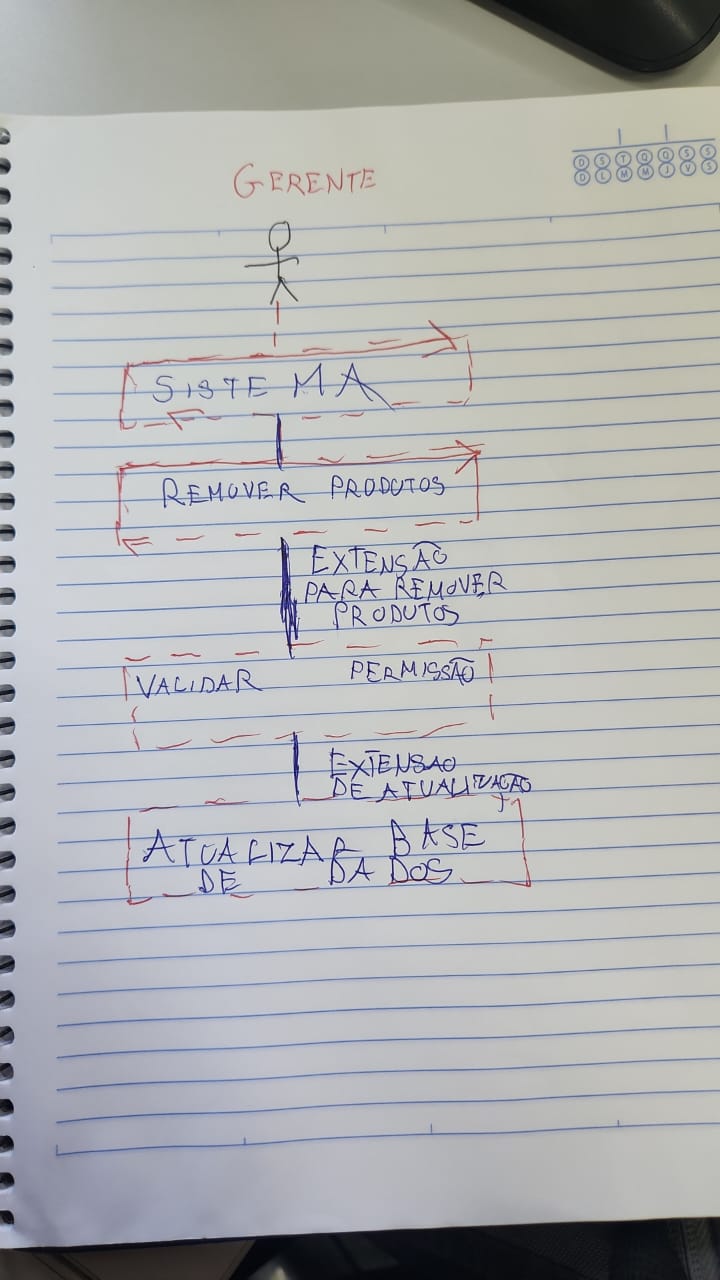 D S T Q Q S S
D L M M J V S
GERENTE
SISTEMA
REMOVER PRODUTOS
EXTENSÃO
PARA REMOVER
PRODUTOS
VALIDAR PERMISSÃO
EXTENSAO
DE ATUALIZAÇÃO
ATUALIZAR BASE
DE DADOS